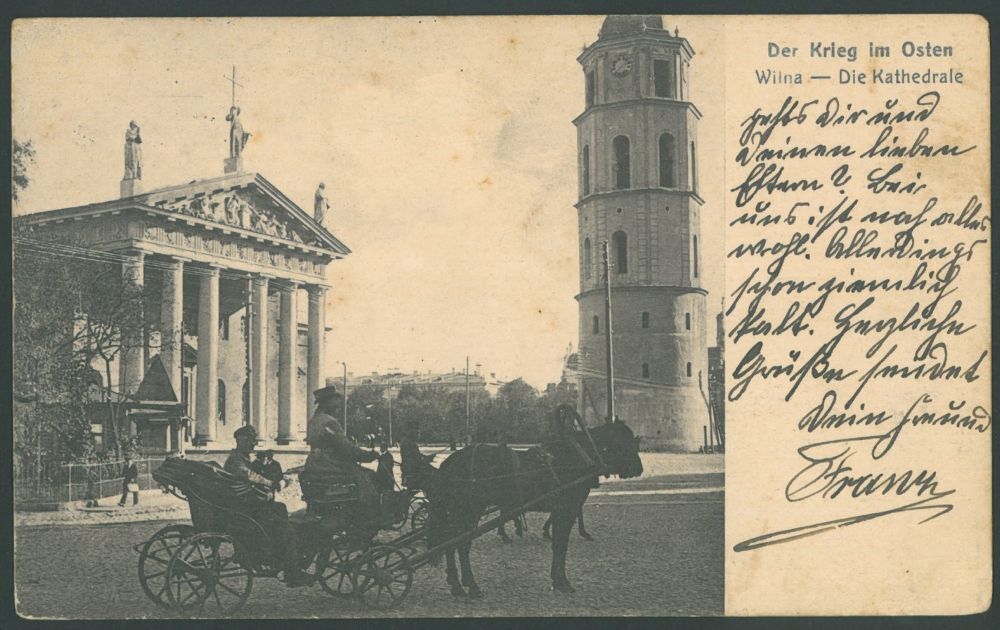 Der Krieg im Osten
Wilna — Die Kathedrale
gehts Dir und
Deinen lieben
Eltern? Bei
uns ist noch alles
wohl. Allerdings
schon ziemlich
kalt. Herzliche
Grüße sendet
Dein Freund
Franz